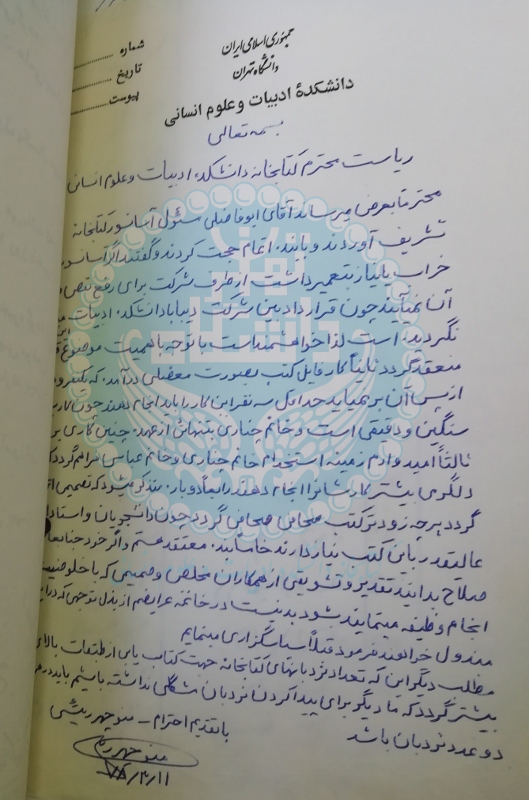 جمهوری اسلامی ایران
دانشگاه تهران
دانشکدهٔ ادبیات و علوم انسانی
شماره
تاریخ
پیوست
بسمه تعالی
ریاست محترم کتابخانه دانشکده ادبیات و علوم انسانی
محترما بعرض میرساند آقای ابوفاضلی مسئول آسانسور کتابخانه
تشریف آوردند و با بنده اتمام حجت کردند و گفتند اگر آسانسور
خراب یا نیاز بتعمیر داشت از طرف شرکت برای رفع نقص
آن نمیآیند چون قرارداد بین شرکت دیبا با دانشکده ادبیات
نگردیده است لذا خواهشمند است با توجه باهمیت موضوع
منعقد گردد ثانیاً کار فایل کتب بصورت معضلی درآمده که یکنفره
از پس آن بر نمیآید حداقل سه نفر این کار را باید انجام دهند چون کار
سنگین و دقیقی است و خانم چناری بتنهائی از عهده چنین کاری بر
ثالثاً امیدوارم زمینه استخدام خانم چناری و خانم عباسی فراهم گردد که
دلگرمی بیشتر کارشانرا انجام دهند رابعاً دوباره متذکر میشود که تصمیمی
گردد هرچه زودتر کتب صحافی گردد چون دانشجویان و اساتید
عالیقدر باین کتب نیاز دارند خامساً بنده معتقد هستم و اگر خود جنابعالی
صلاح بدانید تقدیر و تشویقی از همکاران مخلص و صمیمی که با خلوص نیت
انجام وظیفه مینمایند شود بد نیست در خاتمه عرایضم از بذل توجهی که در این
مبذول خواهند فرمود قبلاً سپاسگزاری مینمایم
مطلب دیگر این که تعداد نردبانهای کتابخانه جهت کتاب یابی از طبقات بالای
بیشتر گردد که ما دیگر برای پیدا کردن نردبان مشکلی نداشته باشیم باید در هر
دو عدد نردبان باشد
با تقدیم احترام - منوچهر
منوچهر
۷۸/۴/۱۱